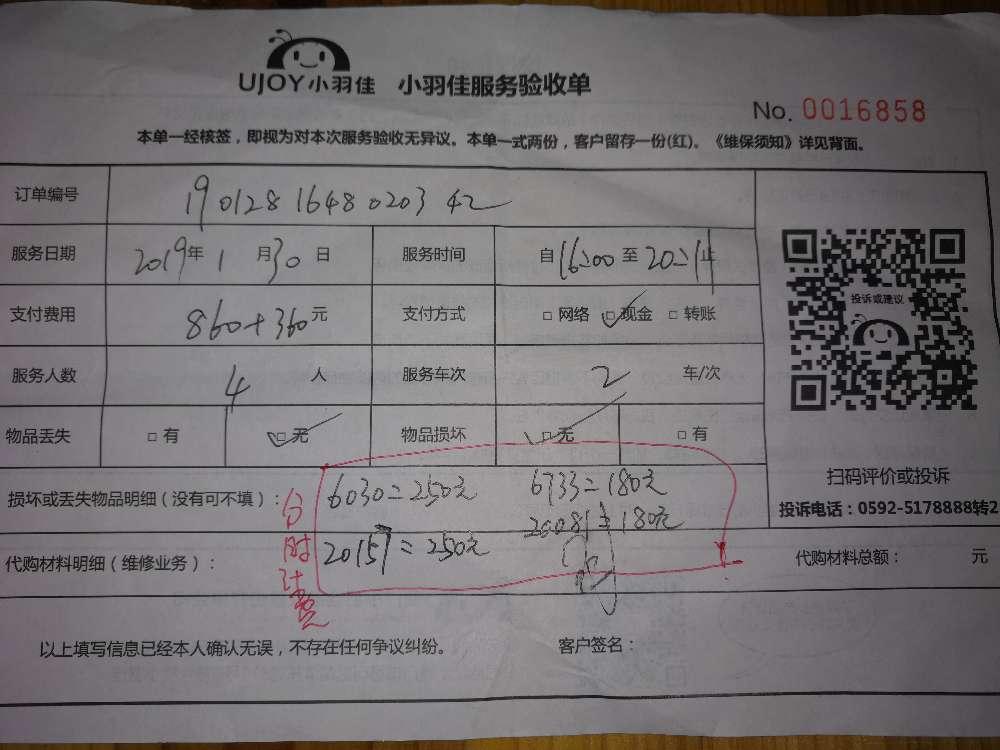 UJOY小羽佳 小羽佳服务验收单
No. 0016858
本单一经核签，即视为对本次服务验收无异议。本单一式两份，客户留存一份(红)。《维保须知》详见背面。
订单编号 19012816480203 42
服务日期 2019年1月30日 服务时间 自16:00至20:21止
支付费用 860+360元 支付方式 □网络 □现金 □转账
投诉或建议
服务人数 4人 服务车次 2车/次
物品丢失 □有 □无 物品损坏 □无 □有
扫码评价或投诉
损坏或丢失物品明细（没有可不填）: 6030=250元 6733=180元
投诉电话：0592-5178888转2
20081=180元
代购材料明细（维修业务）: 20157=250元 代购材料总额： 元
分时计费
以上填写信息已经本人确认无误，不存在任何争议纠纷。 客户签名：